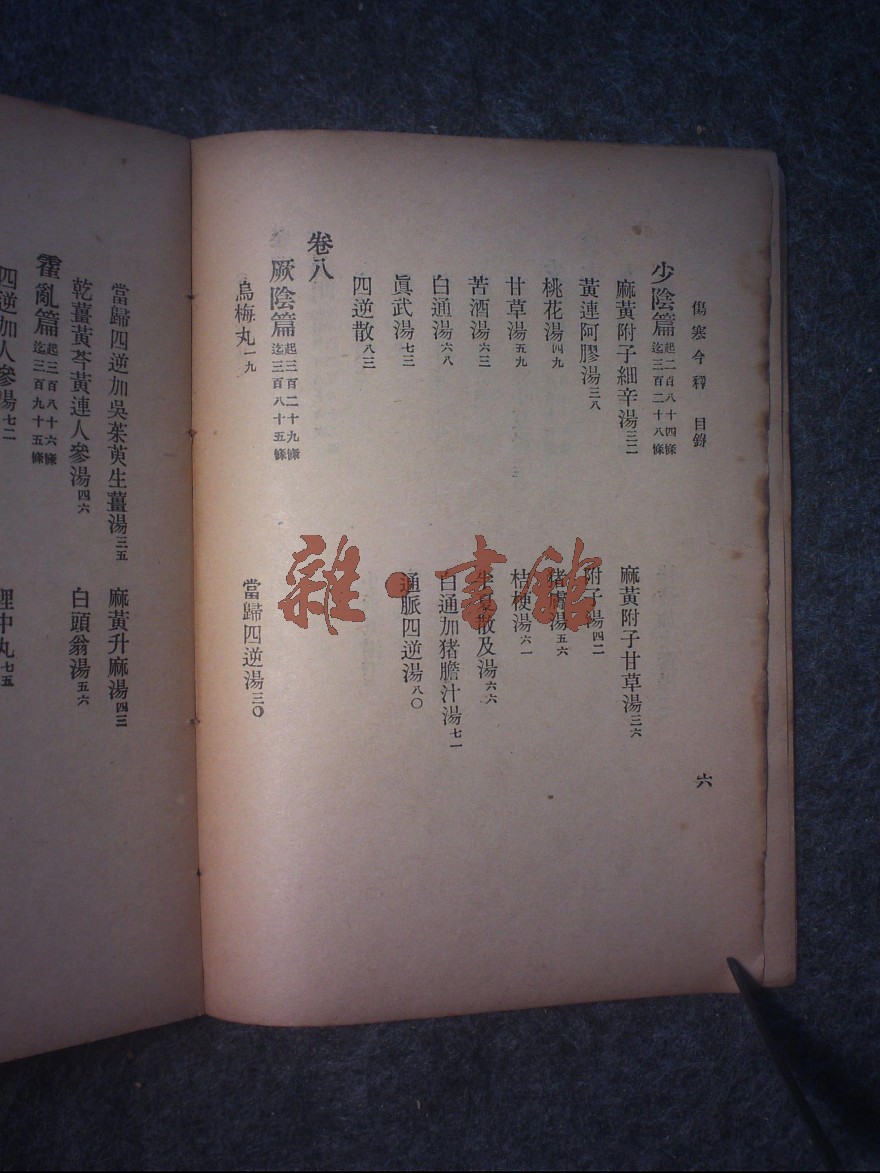 傷寒今釋 目錄
六
少陰篇 起二百八十四條迄三百二十八條
麻黃附子細辛湯三二 麻黃附子甘草湯三六
黃連阿膠湯三八 附子湯四二
桃花湯四九 猪膚湯五六
甘草湯五九 桔梗湯六一
苦酒湯六三 半夏散及湯六六
白通湯六八 白通加猪膽汁湯七一
眞武湯七三 通脈四逆湯八〇
四逆散八三
卷八
厥陰篇 起三百二十九條迄三百八十五條
烏梅丸一九 當歸四逆湯三〇
當歸四逆加吳茱萸生薑湯三五 麻黃升麻湯四三
乾薑黃芩黃連人參湯四六 白頭翁湯五六
霍亂篇 起三百八十六條迄三百九十五條
四逆加人參湯七二 理中丸七五
雜·書館